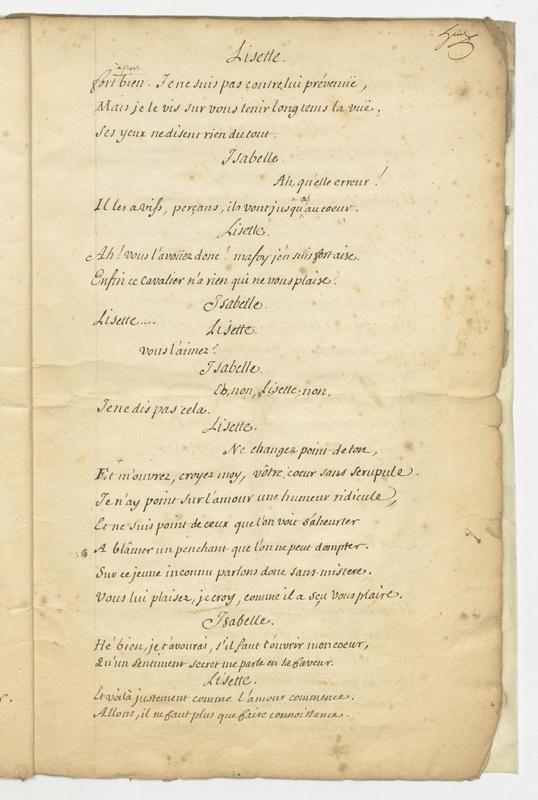 Lisette.
à part
fort bien. Je ne suis pas contre lui prévenüe,
Mais je le vis sur vous tenir longtems la vüe,
Ses yeux ne disent rien du tout.
Isabelle.
Ah, quelle erreur !
Il les a vifs, perçans, ils vont jusqu'au coeur.
Lisette.
Ah ! vous l'avoüez donc ! ma foy j'en suis fort aise.
Enfin ce Cavalier n'a rien qui ne vous plaise.
Isabelle.
Lisette....
Lisette.
vous l'aimez ?
Isabelle.
Eh, non, Lisette, non,
Je ne dis pas cela.
Lisette.
Ne changez point de ton,
Et m'ouvrez, croyez moy, vôtre coeur sans scrupule.
Je n'ay point sur l'amour une humeur ridicule,
Et ne suis point de ceux que l'on voit s'aheurter
A blâmer un penchant que l'on ne peut dompter.
Sur ce jeune inconnu parlons donc sans mistere.
Vous lui plaisez, je croy, comme il a sçu vous plaire.
Isabelle.
Hé bien, je t'avoürai, s'il faut t'ouvrir mon coeur,
Qu'un sentiment secret me parle en sa faveur.
Lisette.
Et voilà justement comme l'amour commence.
Allons, il ne faut plus que faire connoissance.